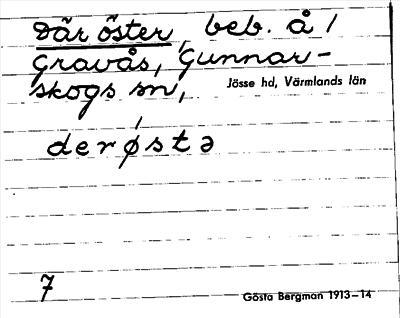 Där öster, beb. å /
Gravås, Gunnar-
skogs sn,
Jösse hd, Värmlands län
derøstə
7
Gösta Bergman 1913-14